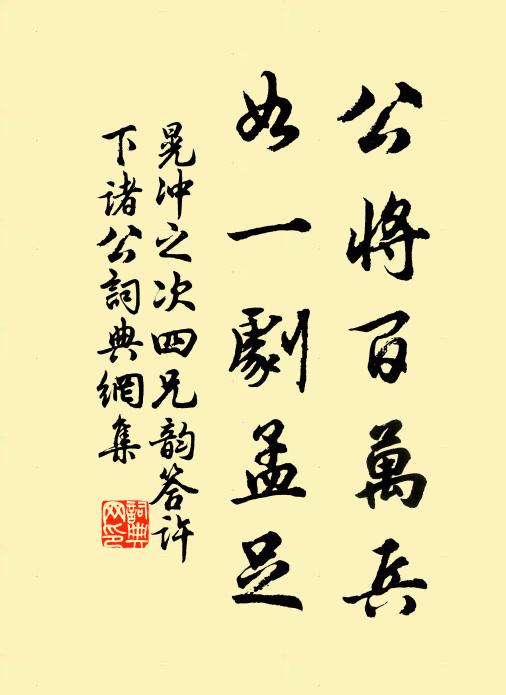 公將百萬兵
如一劇孟足
晁冲之次四兄韵答許
下諸公詞典網集
詞典
网印